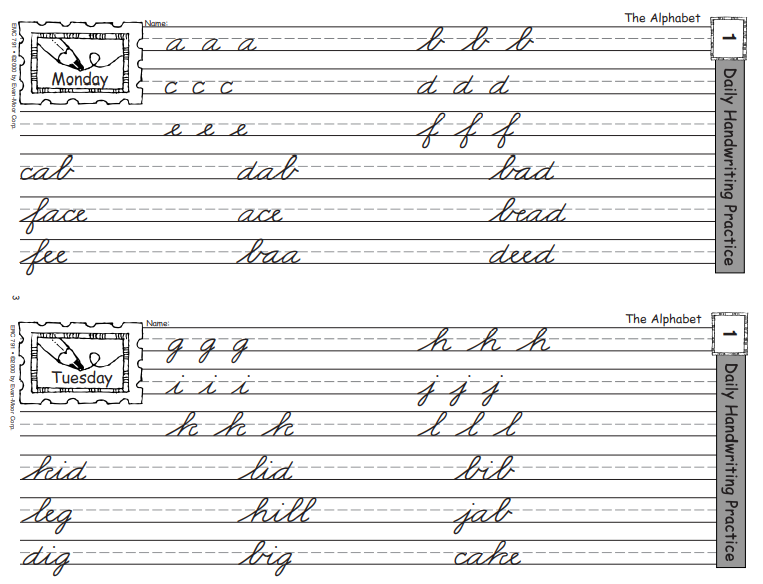 Name:
The Alphabet
1
Daily Handwriting Practice
Monday
EMC 791 • ©2000 by Evan-Moor Corp.
a a a b b b
c c c d d d
e e e f f f
cab dab bad
face ace bead
fee baa deed
3
Name:
The Alphabet
1
Daily Handwriting Practice
Tuesday
EMC 791 • ©2000 by Evan-Moor Corp.
g g g h h h
i i i j j j
k k k l l l
kid lid bib
leg hill jab
dig big cake